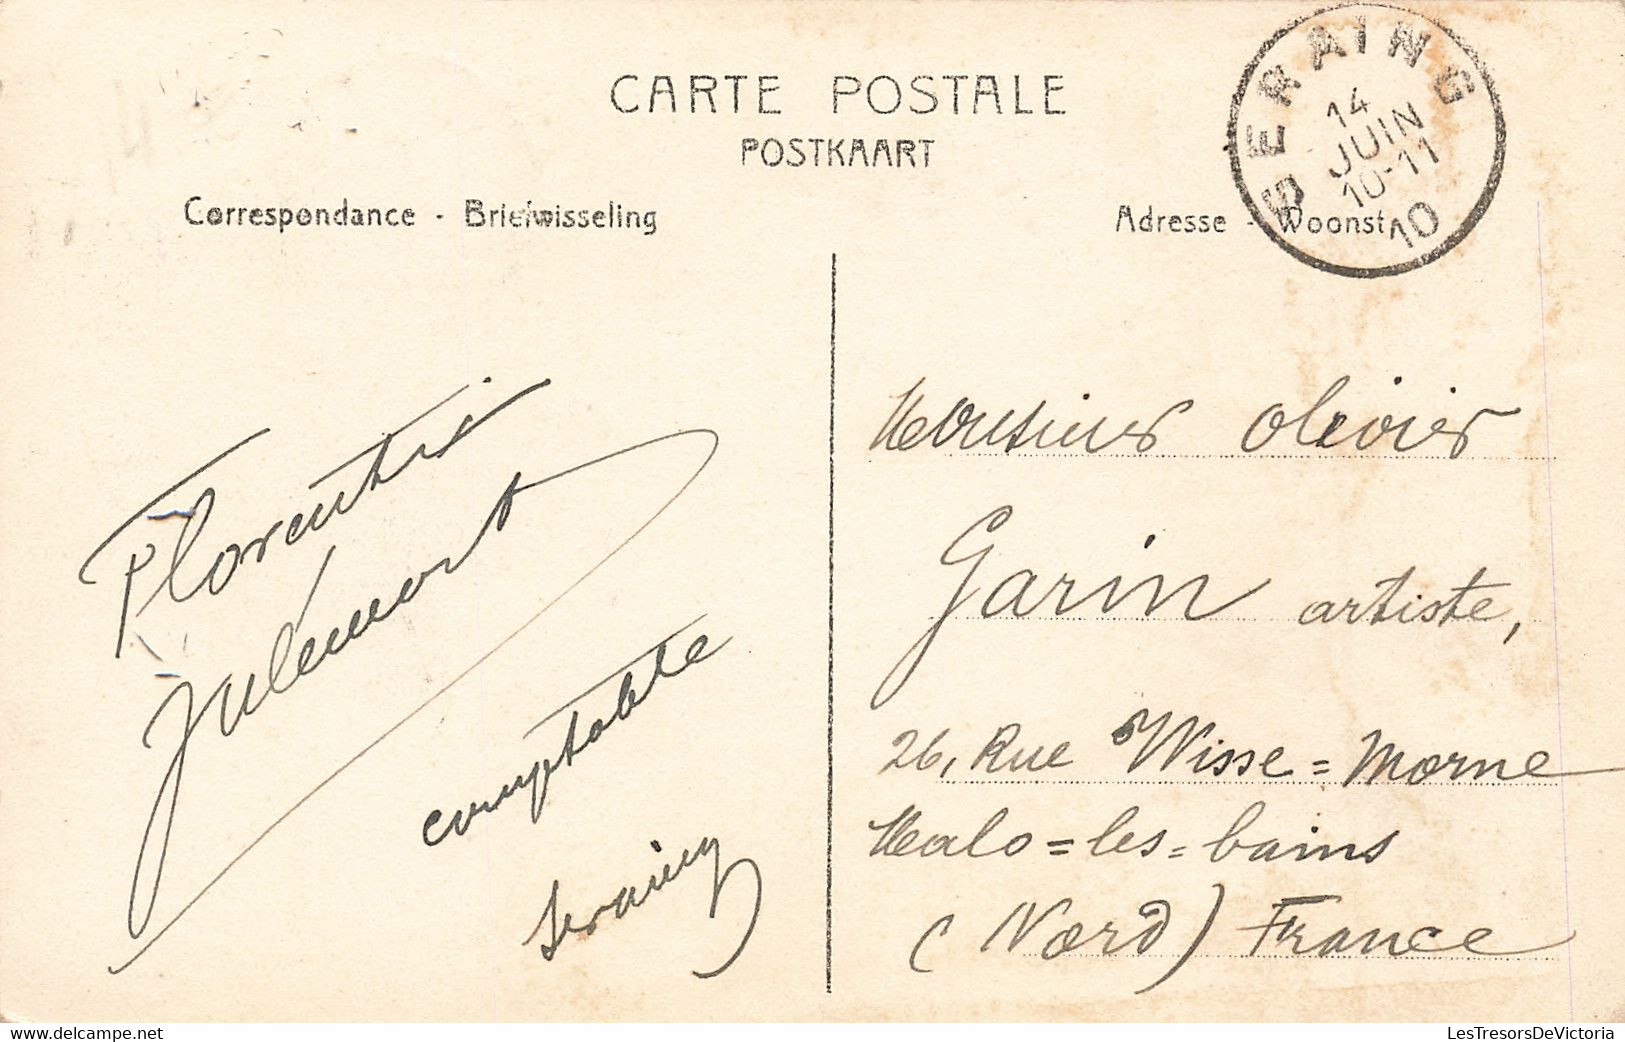 CARTE POSTALE
POSTKAART
Correspondance - Briefwisseling
Adresse - Woonst
SERAING
14
JUIN
10-11
10
Florentin
Julémont
comptable
Seraing
Monsieur Olivier
Garin artiste,
26, Rue Wisse=Morne
Malo=les=bains
(Nord) France
delcampe.net
LesTresorsDeVictoria